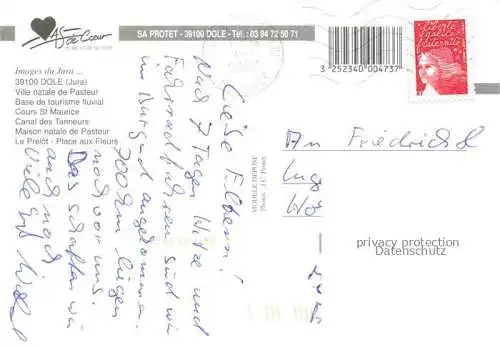 As de Cœur
SA PROTET - 39100 DOLE - Tél. : 03 84 72 50 71
3 252340 004737
Liberté
égalité
fraternité
Images du Jura ...
39100 DOLE (Jura)
Ville natale de Pasteur
Base de tourisme fluvial
Cours St Maurice
Canal des Tanneurs
Maison natale de Pasteur
Le Prélot - Place aux Fleurs
Liebe Eltern!
Nach 7 Tagen Hitze und
Fahrradfahren sind wir
im Burgund angekommen.
700 km liegen
noch vor uns.
Das schaffen wir
auch noch
Viele
MODELE DEPOSE
Photos J.C. Protet
An Friedrich
privacy protection
Datenschutz